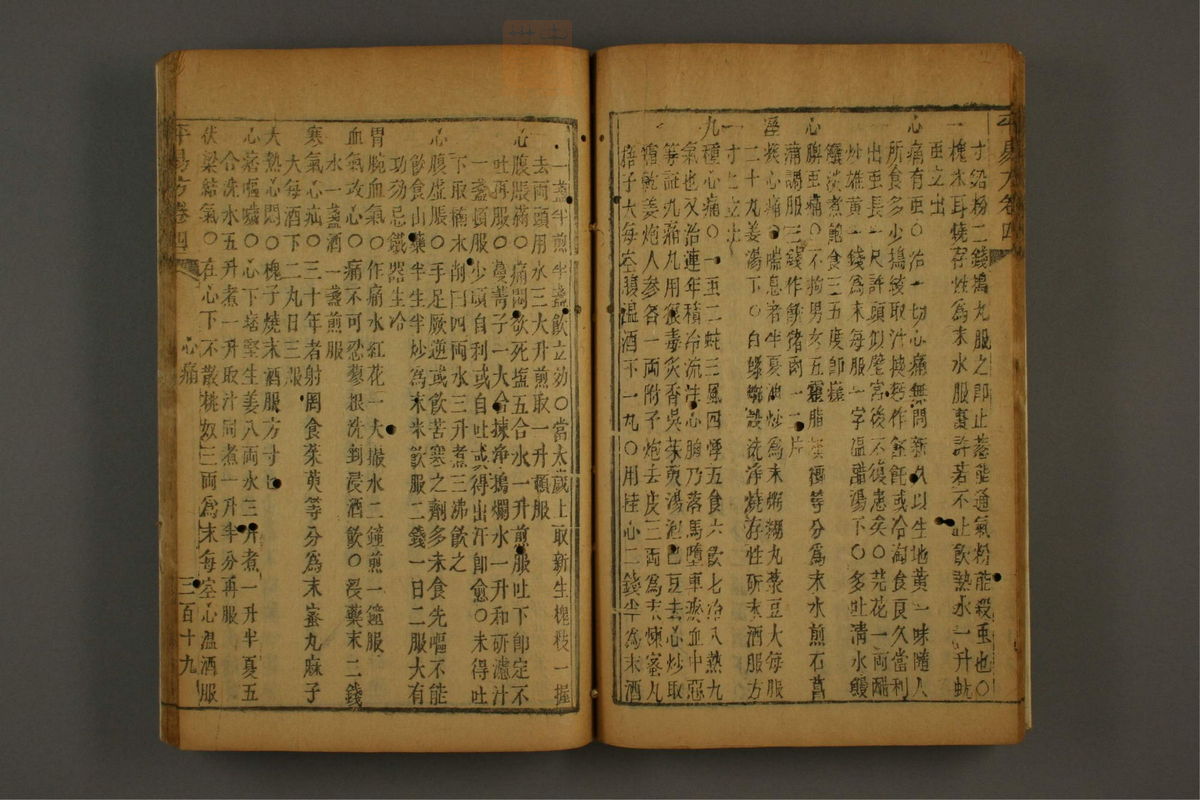 平易方卷四
寸鉛粉二錢搗丸服之即止葱能通氣粉能殺䖝也〇
一槐木耳燒存性爲末水服棗許若不止飲熱水一升蚘
䖝立出
心痛有䖝〇治一切心痛無問新久以生地黃一味隨人
所食多少搗絞取汁搜麪作餺飥或冷淘食良久當利
出䖝長一尺許頭似壁宮後不復患矣〇芫花一兩醋
炒雄黃一錢爲末每服一字溫醋湯下〇多吐清水鰻
鱺淡煮飽食三五度即瘥
心脾䖝痛〇不拘男女五靈脂檳榔等分爲末水煎石菖
蒲調服三錢先作猪肉一二片
痰心痛〇喘息者半夏油炒爲末粥糊丸菉豆大每服
二十九姜湯下〇白螺螄殼洗淨燒存性研末酒服方
寸匕立止
九種心痛〇一䖝二蛀三風四悸五食六飲七冷八熱九
氣也又治連年積冷流注心胸乃落馬墮車瘀血中惡
等証九痛丸用狼毒炙香吳茱萸湯泡巴豆去心炒取
霜乾姜炮人參各一兩附子炮去皮三兩爲末煉蜜丸
梧子大每空腹溫酒下一丸〇用桂心二錢半為末酒
一盞半煎半盞飲立効〇當太歲上取新生槐枝一握
去兩頭用水三大升煎取一升頓服
心腹脹滿〇痛悶欲死塩五合水一升煎服吐下即定不
吐再服〇蔓菁子一大合揀淨搗爛水一升和研濾汁
一盞頓服少頃自利或自吐或得出汗即愈〇未得吐
下取楠木削四兩水三升煮三沸飲之
心腹虛脹〇手足厥逆或飲苦寒之劑多未食先嘔不能
飲食山藥半生半炒為末米飲服二錢一日二服大有
功効忌鐵器生冷
胃腕血氣〇作痛水紅花一大撮水二鐘煎一鐘服
血氣攻心〇痛不可忍蓼根洗剉浸酒飲〇浸藥末二錢
水一盞酒一盞煎服
寒氣心疝〇三十年者射罔食茱萸等分爲末蜜丸麻子
大每酒下二丸日三服
大熱心悶〇槐子燒末酒服方寸匕
心痞嘔噦〇心下痞堅生姜八兩水三升煮一升半夏五
合洗水五升煮一升取汁同煮一升半分再服
伏梁結氣〇在心下不散桃奴三兩爲末每空心溫酒服
平易方卷四
心痛
三百十九